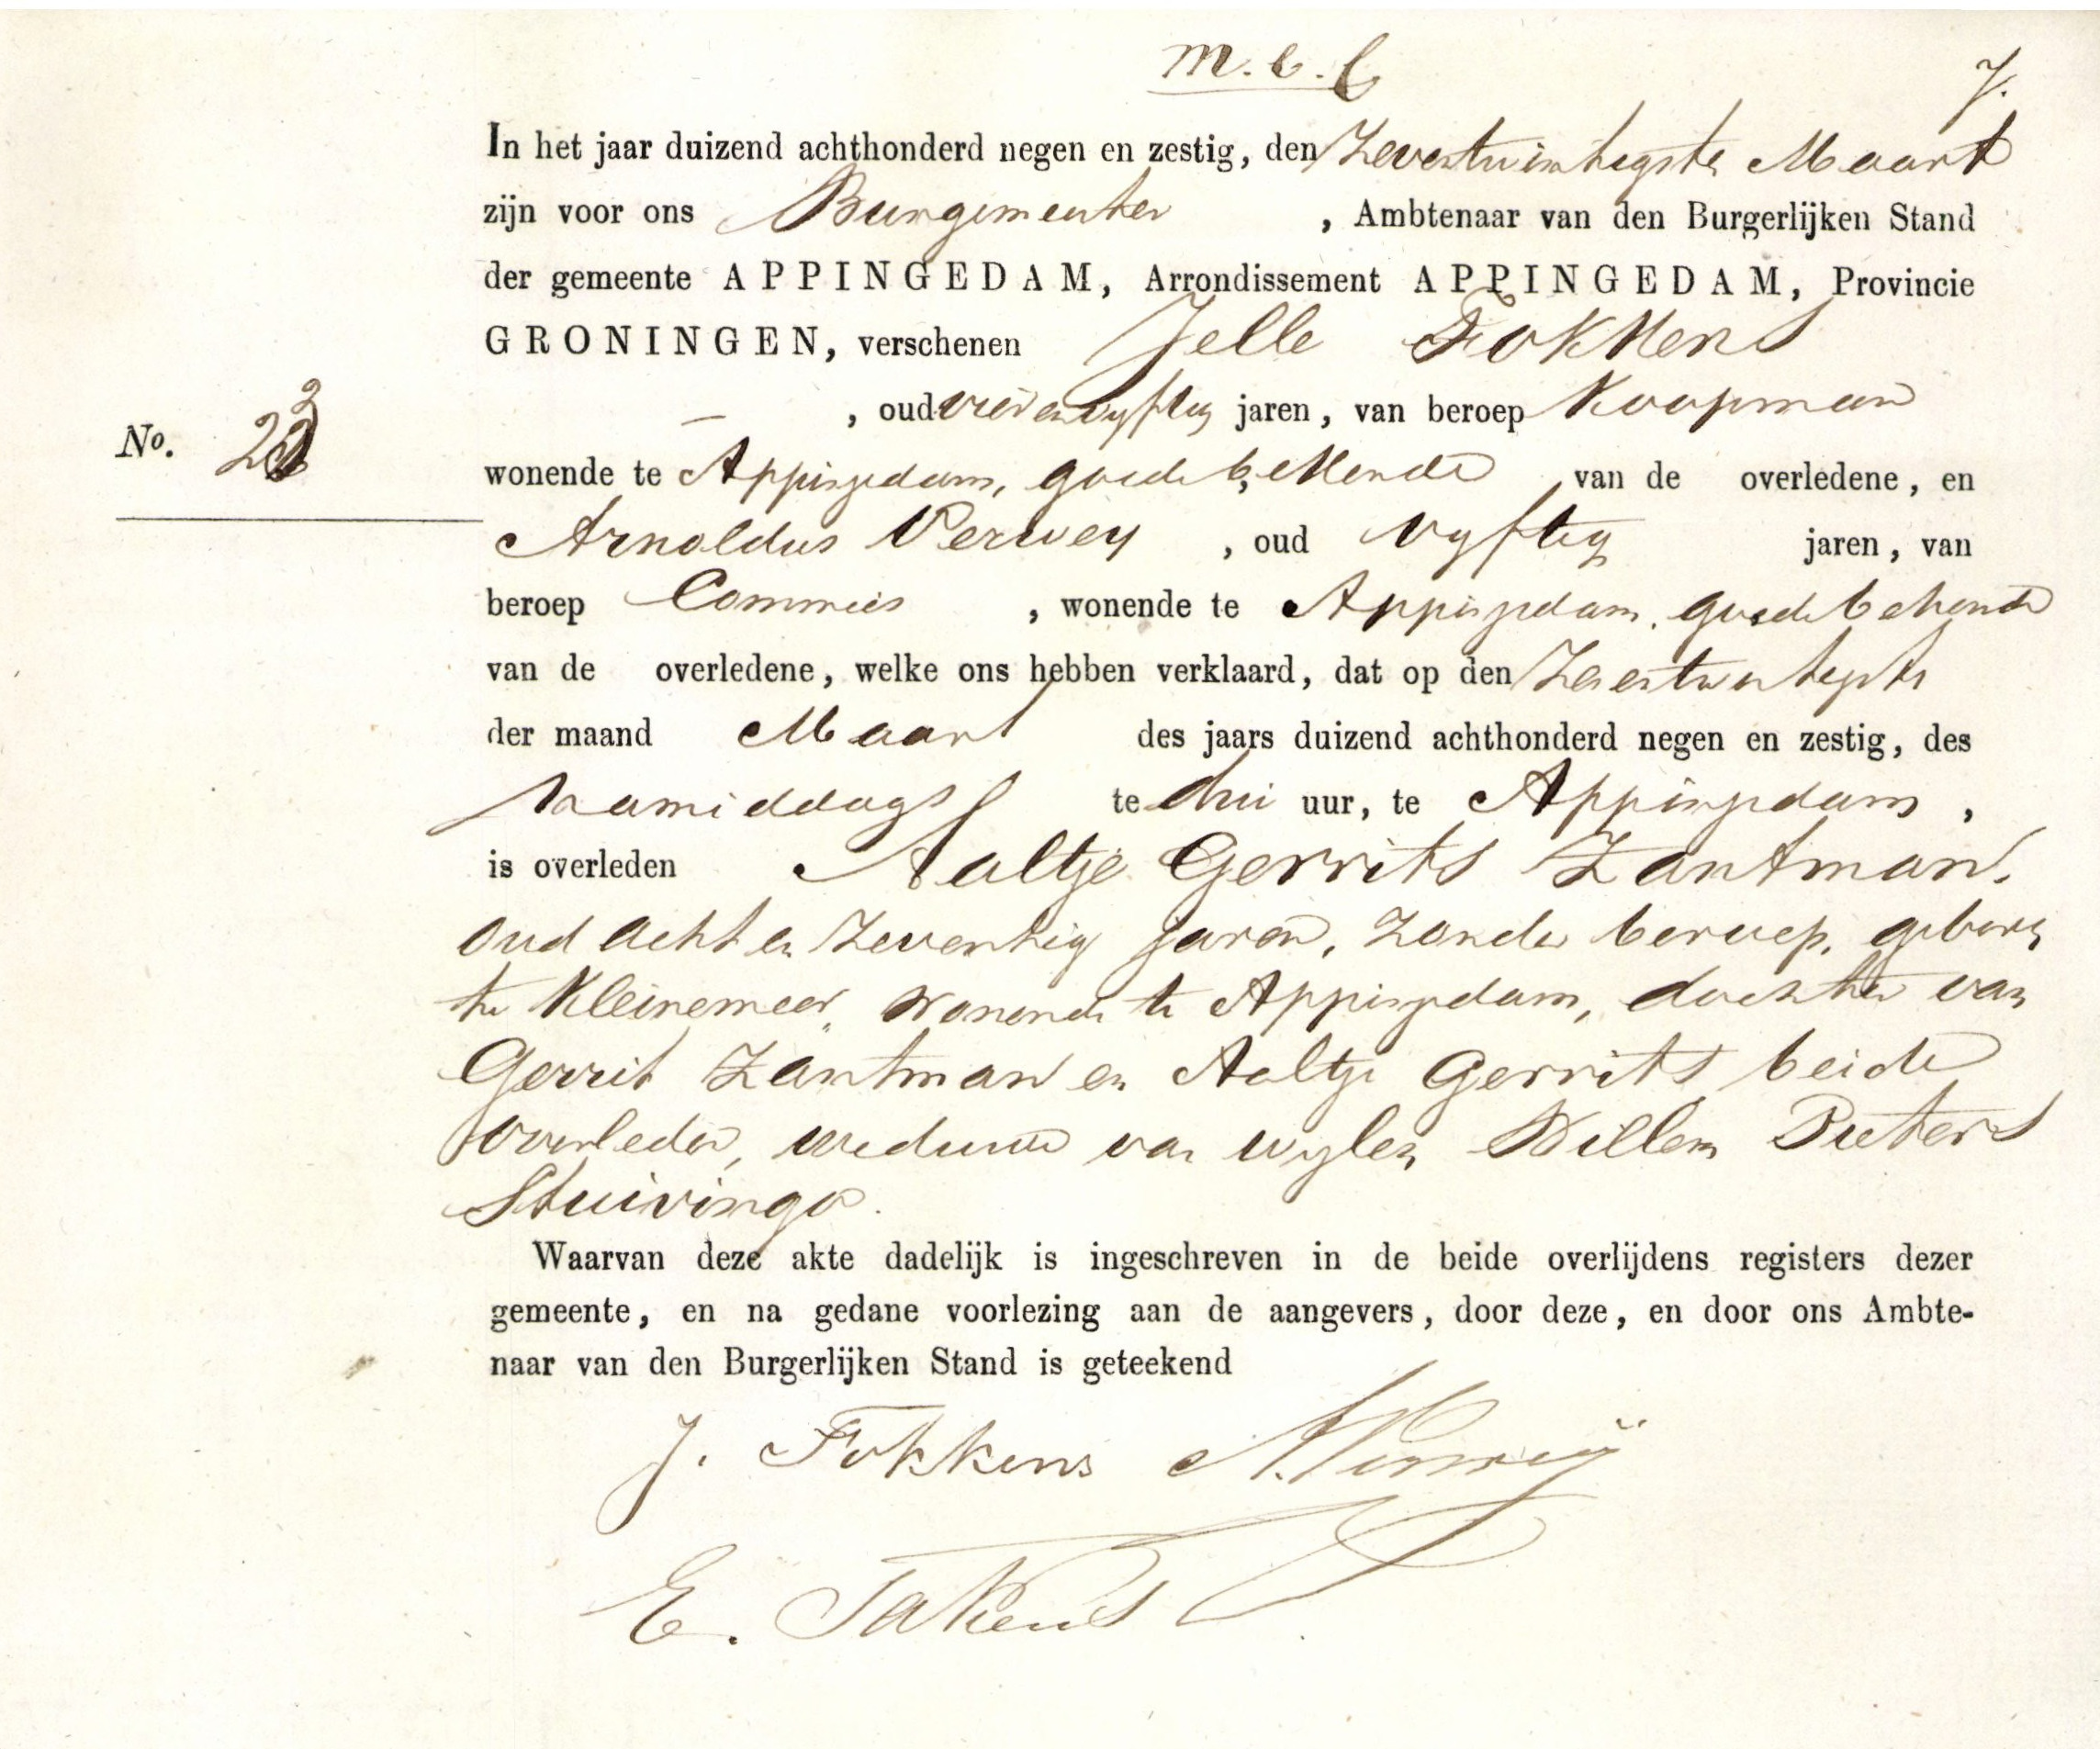 m.c.l
7.
In het jaar duizend achthonderd negen en zestig, den Zevertwintigste Maart
zijn voor ons Burgemeester, Ambtenaar van den Burgerlijken Stand
der gemeente APPINGEDAM, Arrondissement APPINGEDAM, Provincie
GRONINGEN, verschenen Jelle Fokkens
, oud jaren, van beroep Koopman
No. 23
wonende te Appingedam, goede bekende van de overledene, en
Arnoldus Verwey, oud vyftig jaren, van
beroep Commies, wonende te Appingedam, goede bekende
van de overledene, welke ons hebben verklaard, dat op den
der maand Maart des jaars duizend achthonderd negen en zestig, des
namiddags te drie uur, te Appingedam,
is overleden Aaltje Gerrits Zantman,
oud acht en Zeventig jaren, zonder beroep, geboren
te Kleinemeer, wonende te Appingedam, dochter van
Gerrit Zantman en Aaltje Gerrits beide
overleden, weduwe van wylen Willem Pieters
Stuivinga.
Waarvan deze akte dadelijk is ingeschreven in de beide overlijdens registers dezer
gemeente, en na gedane voorlezing aan de aangevers, door deze, en door ons Ambte-
naar van den Burgerlijken Stand is geteekend
J. Fokkens A. Verweij
E. Takens